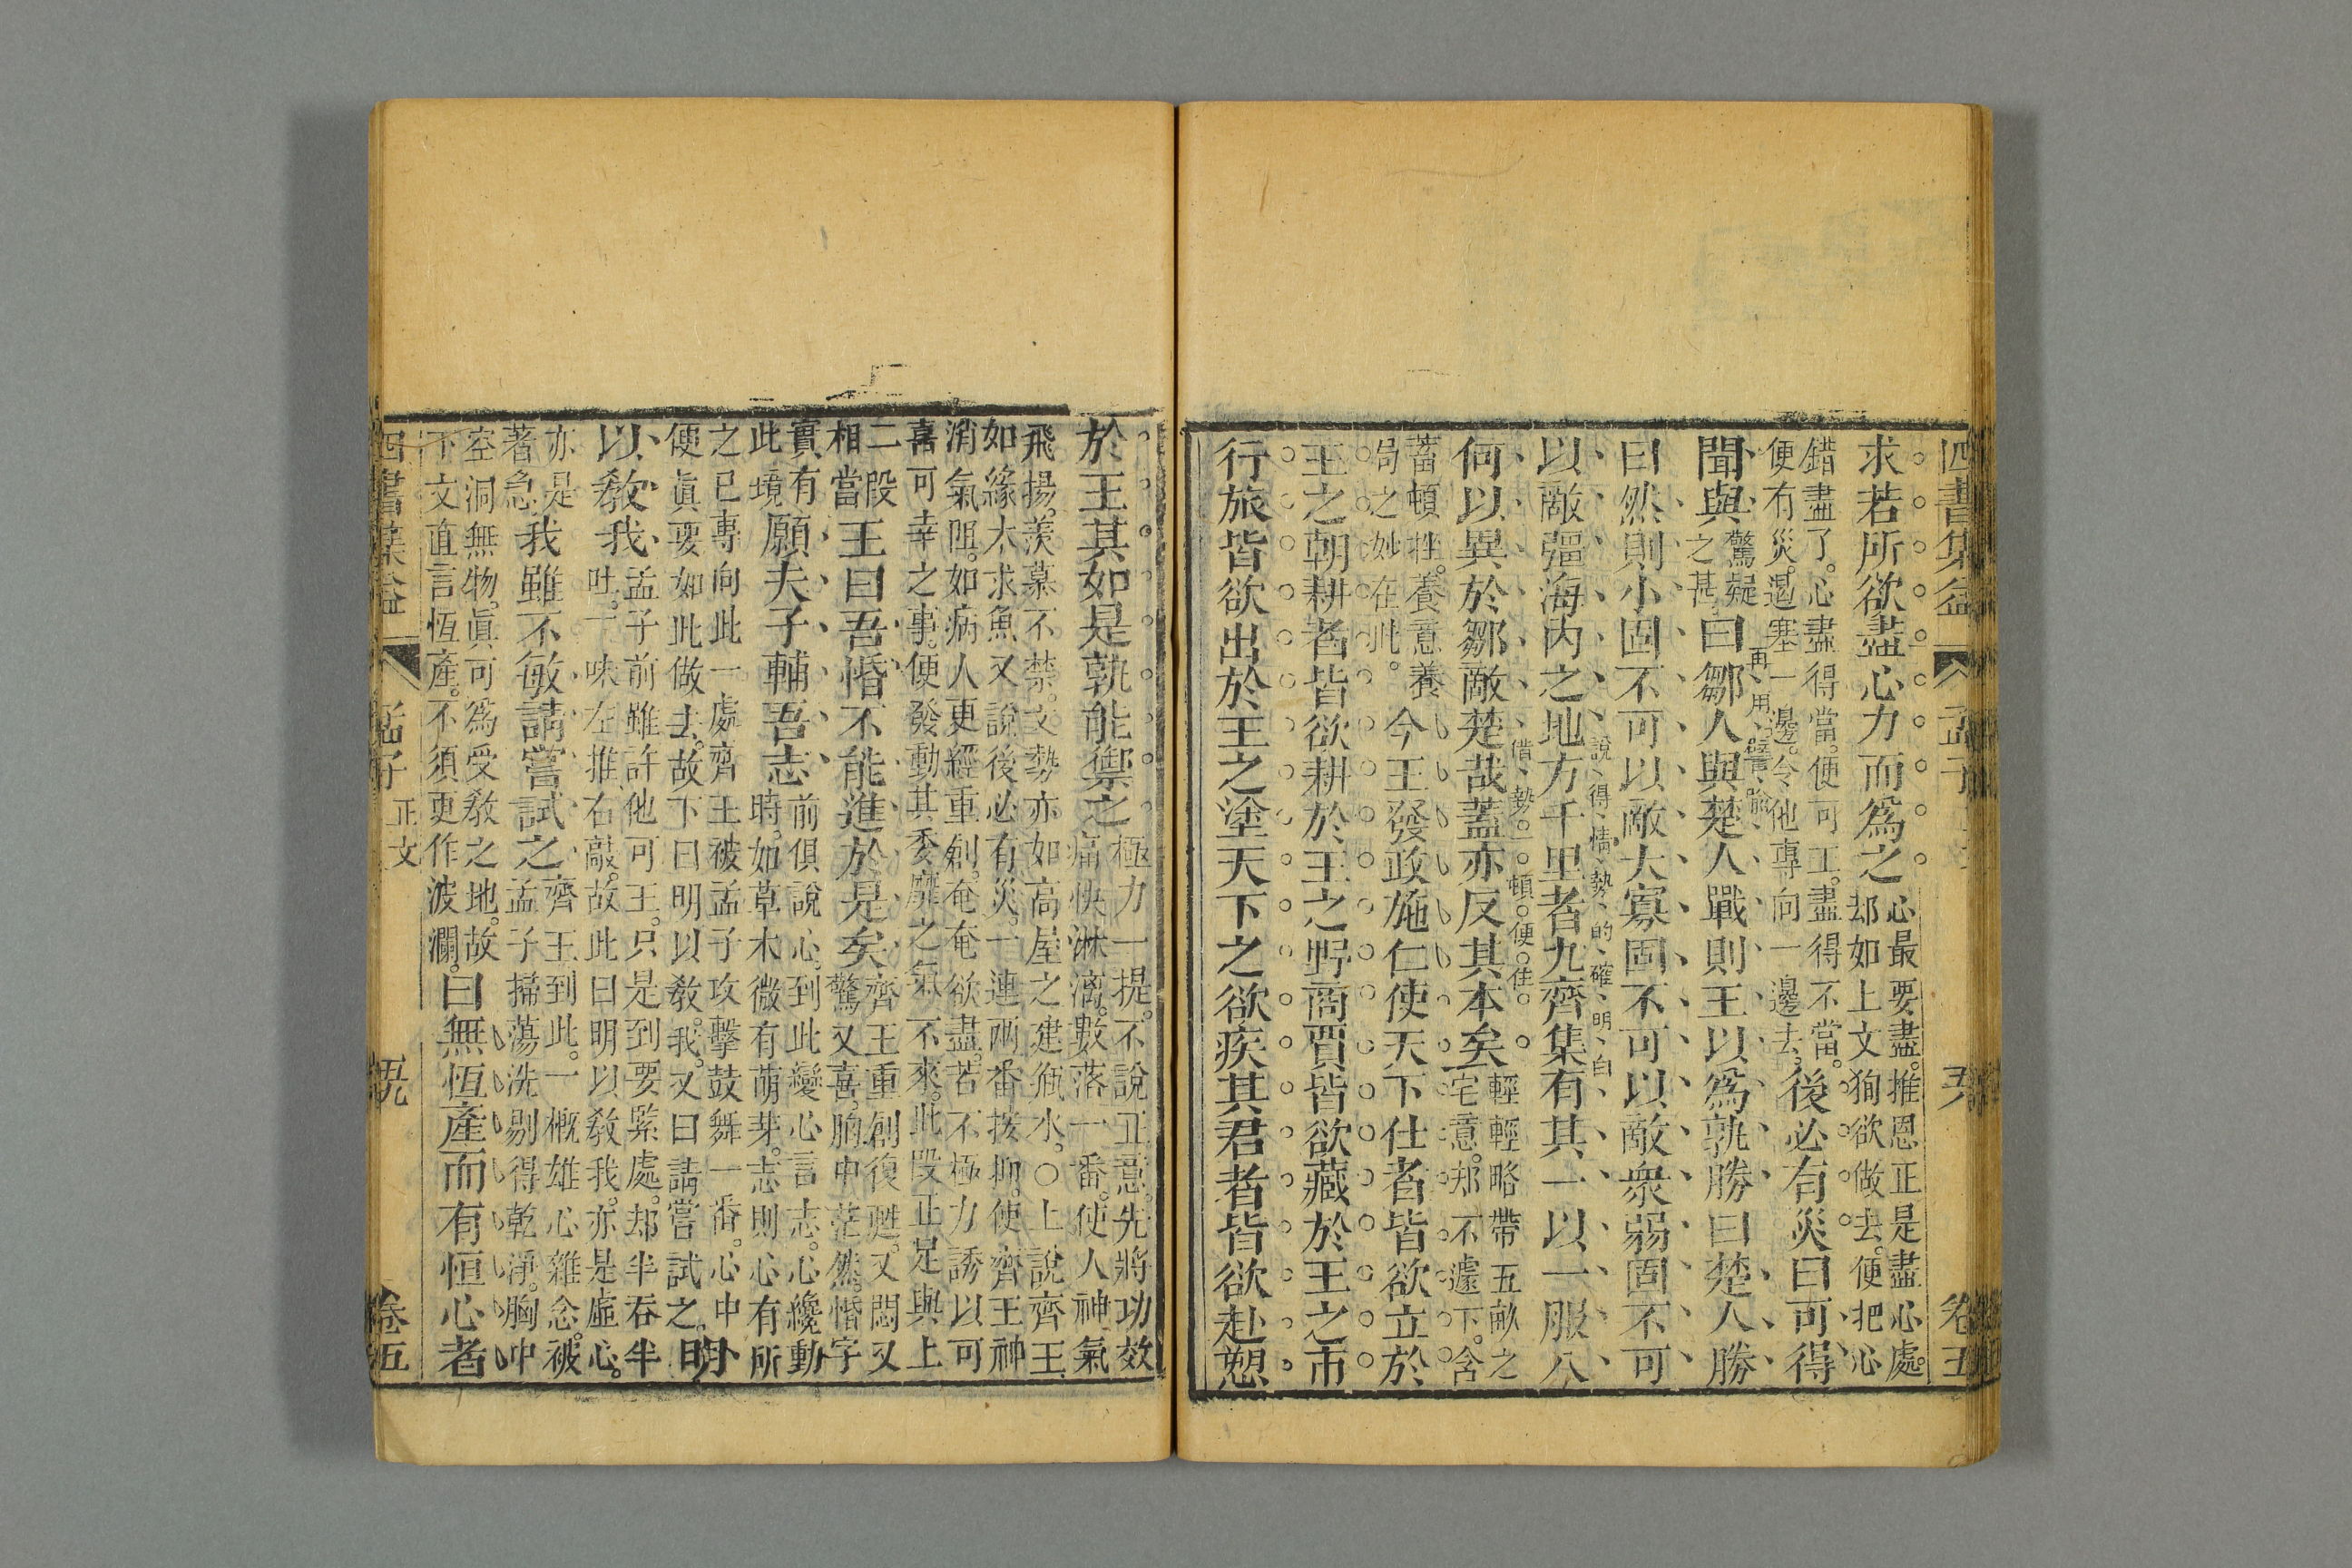 四書集益 孟子 卷五
求若所欲盡心力而爲之心最要盡。推恩正是盡心處。
却如上文狥欲做去。便把心
錯盡了。心盡得當。便可王。盡得不當。
便有災。遏塞一邊。令他專向一邊去。後必有災曰可得
聞與驚疑
之甚。曰鄒人與楚人戰則王以爲孰勝曰楚人勝
再用譬喻
曰然則小固不可以敵大寡固不可以敵衆弱固不可
以敵彊海内之地方千里者九齊集有其一以一服八
說得情勢的確明白
何以異於鄒敵楚哉蓋亦反其本矣輕輕略帶五畝之
宅意。却不遽下。含
借勢一頓便住。
蓄頓挫。養意養
局之妙在此。今王發政施仁使天下仕者皆欲立於
王之朝耕者皆欲耕於王之野商賈皆欲藏於王之市
行旅皆欲出於王之塗天下之欲疾其君者皆欲赴愬
於王其如是孰能禦之極力一提。不說正意。先將功效
痛快淋漓。數落一番。使人神氣
飛揚。羨慕不禁。文勢亦如高屋之建瓴水。○上說齊王
如緣木求魚又說後必有災。一連兩番按抑。使齊王神
消氣阻。如病人更經重創。奄奄欲盡。若不極力誘以可
喜可幸之事。便發動其委靡之氣不來。此段正是與上
二段
相當王曰吾惛不能進於是矣齊王重創復甦。又悶又
驚又喜。胸中茫然。惛字
實有
此境願夫子輔吾志前俱說心。到此變心言志。心纔動
時。如草木微有萌芽。志則心有所
之已專向此一處齊王被孟子攻擊鼓舞一番。心中
便眞要如此做去。故下曰明以敎我。又曰請嘗試之。明
以敎我孟子前雖許他可王。只是到要緊處。却半吞半
吐。一味左推右敲。故此曰明以敎我。亦是虛心。
亦是
著急我雖不敏請嘗試之齊王到此。一概雄心雜念。被
孟子掃蕩洗剔得乾淨。胸中
空洞無物。眞可爲受敎之地。故
下文直言恆產。不須更作波瀾。曰無恆產而有恒心者
四書集益 孟子 正文 卷五